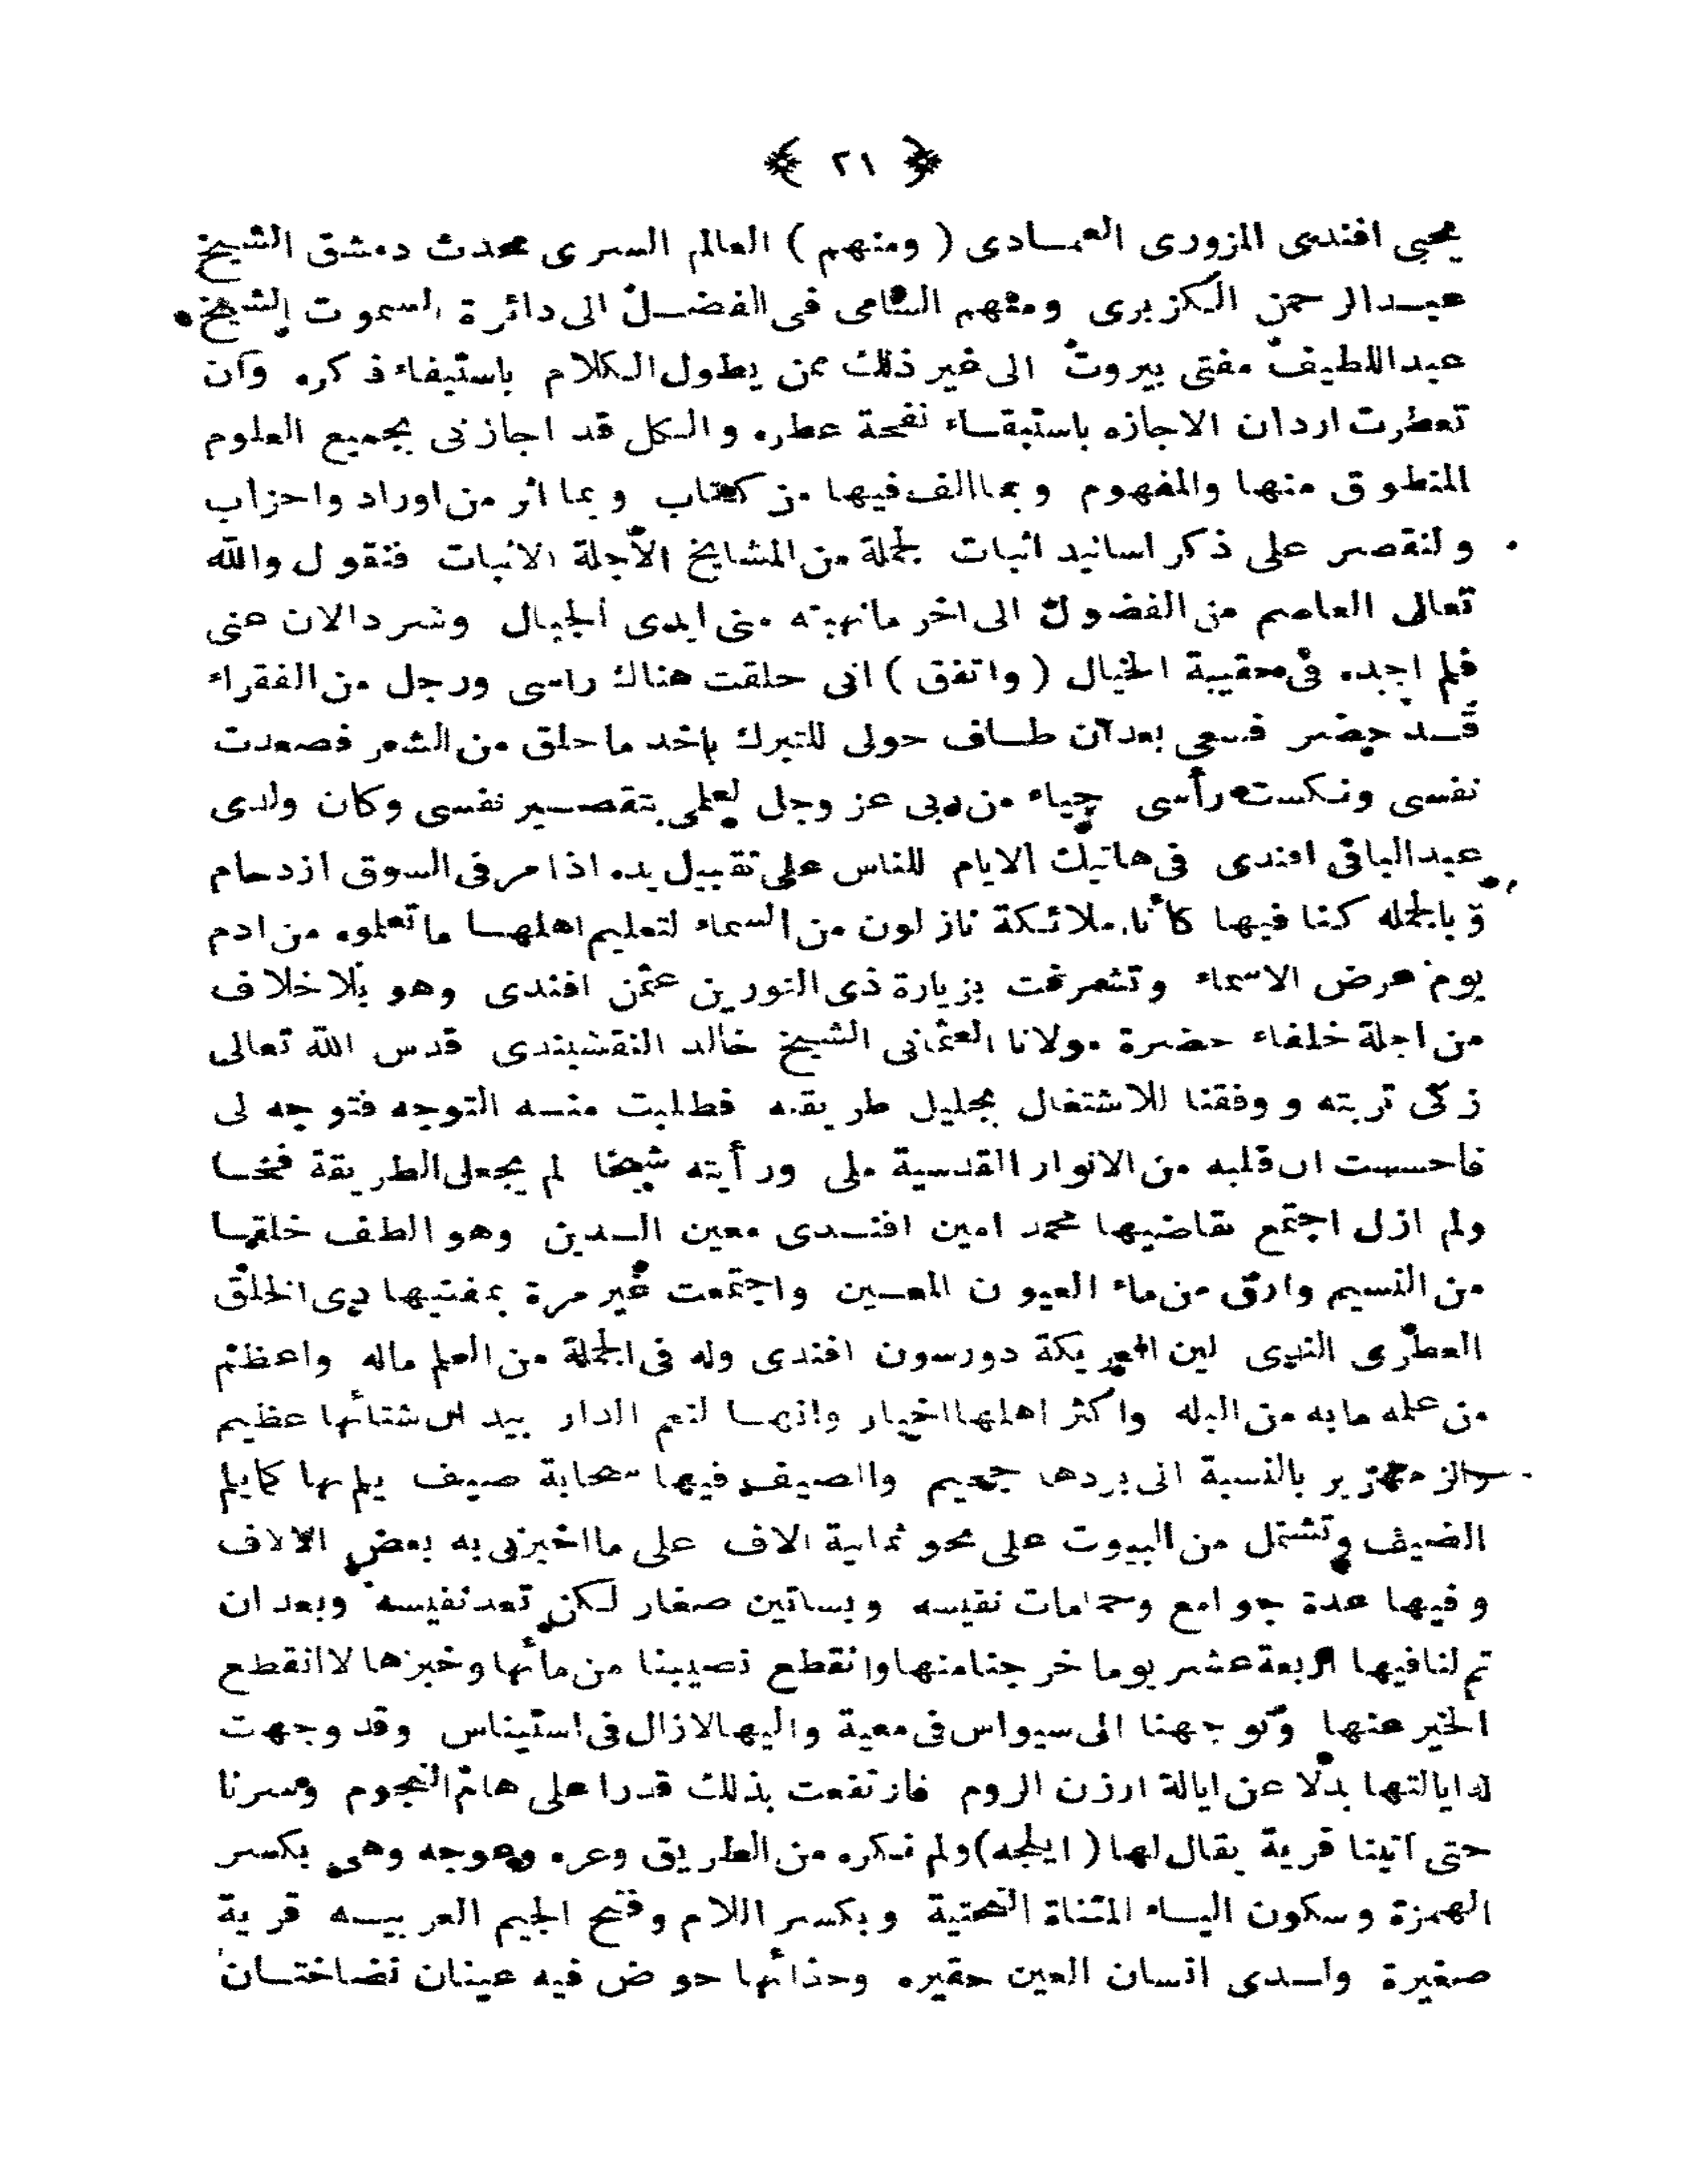 ﴿ ٢١ ﴾
يحيى افندى المزورى العمادى ( ومنهم ) العالم السرى محدث دمشق الشيخ
عبدالرحمن الكزبرى ومنهم السامى فى الفضل الى دائرة السموت الشيخ
عبداللطيف مفتى بيروت الى غير ذلك ممن يطول الكلام باستيفاء ذكره وان
تعطرت اردان الاجازه باستبقاء نفحة عطره والكل قد اجازنى بجميع العلوم
المنطوق منها والمفهوم وبما الف فيها من كتاب وبما اثر من اوراد واحزاب
ولنقصر على ذكر اسانيد اثبات لجملة من المشايخ الاجلة الاثبات فنقول والله
تعالى العاصم من الفضول الى اخر مانهبته منى ايدى الجبال وشرد الان عنى
فلم اجده فى حقيبة الخيال ( واتفق ) انى حلقت هناك راسى ورجل من الفقراء
قد حضر فسعى بعدان طاف حولى للتبرك باخد ما حلق من الشعر فصعدت
نفسى ونكست رأسى حياء من ربى عز وجل لعلمى بتقصير نفسى وكان ولدى
عبدالباقى افندى فى هاتيك الايام للناس على تقبيل يده اذا مر فى السوق ازدحام
وبالجمله كنا فيها كأنا ملائكة نازلون من السماء لتعليم اهلها ما تعلموه من ادم
يوم عرض الاسماء وتشرفت بزيارة ذى النورين عثمن افندى وهو بلا خلاف
من اجلة خلفاء حضرة مولانا العثمانى الشيخ خالد النقشبندى قدس الله تعالى
زكى تربته ووفقنا للاشتغال بجليل طريقه فطلبت منه التوجه فتوجه لى
فاحسست ان قلبه من الانوار القدسية ملى ورأيته شيخا لم يجعل الطريقة فخا
ولم ازل اجتمع بقاضيها محمد امين افندى معين الدين وهو الطف خلقا
من النسيم وارق من ماء العيون المعين واجتمعت غير مرة بمفتيها ذى الخلق
العطرى الندى لين العريكة دورسون افندى وله فى الجملة من العلم ماله واعظم
من علمه ما به من البله واكثر اهلها اخيار وانها لنعم الدار بيد ان شتأئها عظيم
والزمهرير بالنسبة الى بردها جحيم والصيف فيها سحابة صيف يلم بها كما يلم
الضيف وتشتمل من البيوت على نحو ثمانية الاف على ما اخبرنى به بعض الالاف
وفيها عدة جوامع وحمامات نفيسه وبساتين صغار لكن تعد نفيسه وبعد ان
تم لنا فيها اربعة عشر يوما خرجنا منها وانقطع نصيبنا من مائها وخبزها لا انقطع
الخير عنها وتوجهنا الى سيواس فى معية واليها لازال فى استيناس وقد وجهت
له ايالتها بدلا عن ايالة ارزن الروم فارتفعت بذلك قدرا على هام النجوم وسرنا
حتى اتينا قرية يقال لها ( ايلجه ) ولم نكره من الطريق وعره وعوجه وهى بكسر
الهمزة وسكون الياء المثناة التحتية وبكسر اللام وفتح الجيم العربيه قرية
صغيرة ولدى انسان العين حقيره وحذائها حوض فيه عينان نضاختان